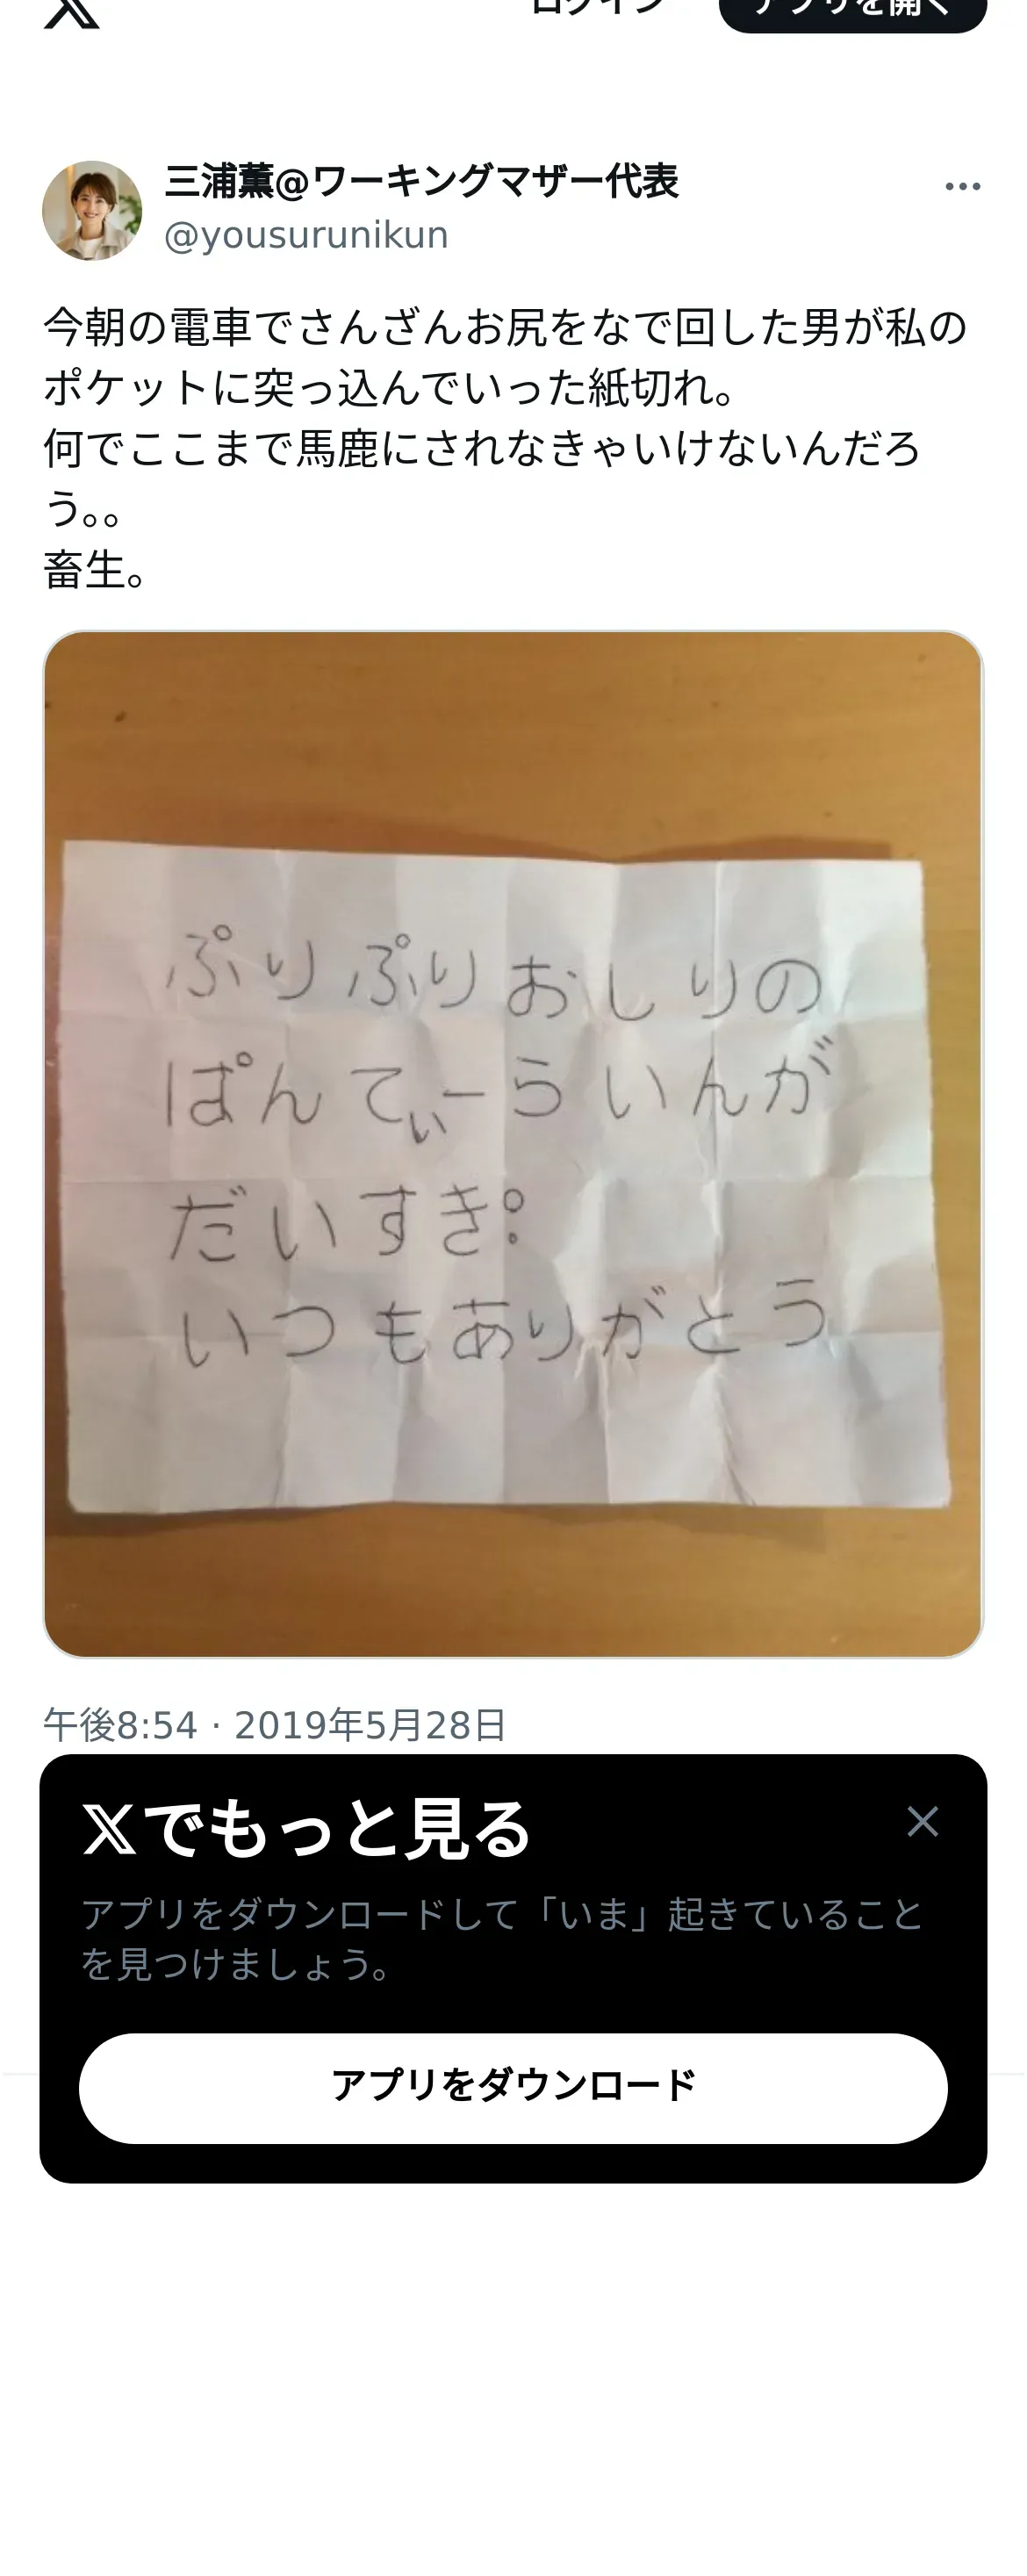 ログイン
アプリを開く
三浦薫@ワーキングマザー代表
@yousurunikun
今朝の電車でさんざんお尻をなで回した男が私の
ポケットに突っ込んでいった紙切れ。
何でここまで馬鹿にされなきゃいけないんだろ
う。。
畜生。
ぷりぷりおしりの
ぱんてぃーらいんが
だいすき。
いつもありがとう
午後8:54 · 2019年5月28日
Xでもっと見る
アプリをダウンロードして「いま」起きていること
を見つけましょう。
アプリをダウンロード